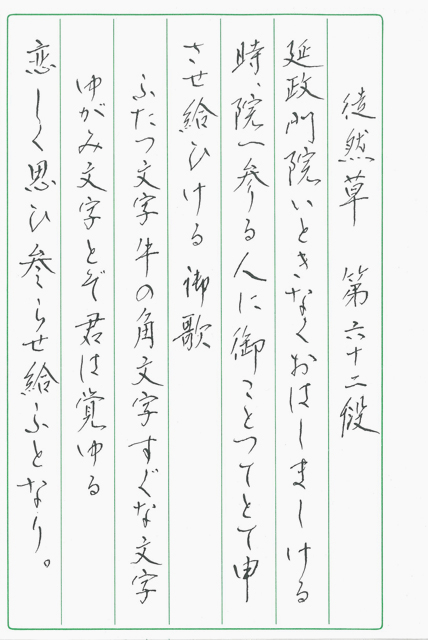 徒然草　第六十二段
延政門院いときなくおはしましける
時、院へ参る人に御ことつてとて申
させ給ひける御歌
ふたつ文字牛の角文字すぐな文字
ゆがみ文字とぞ君は覚ゆる
恋しく思ひ参らせ給ふとなり。